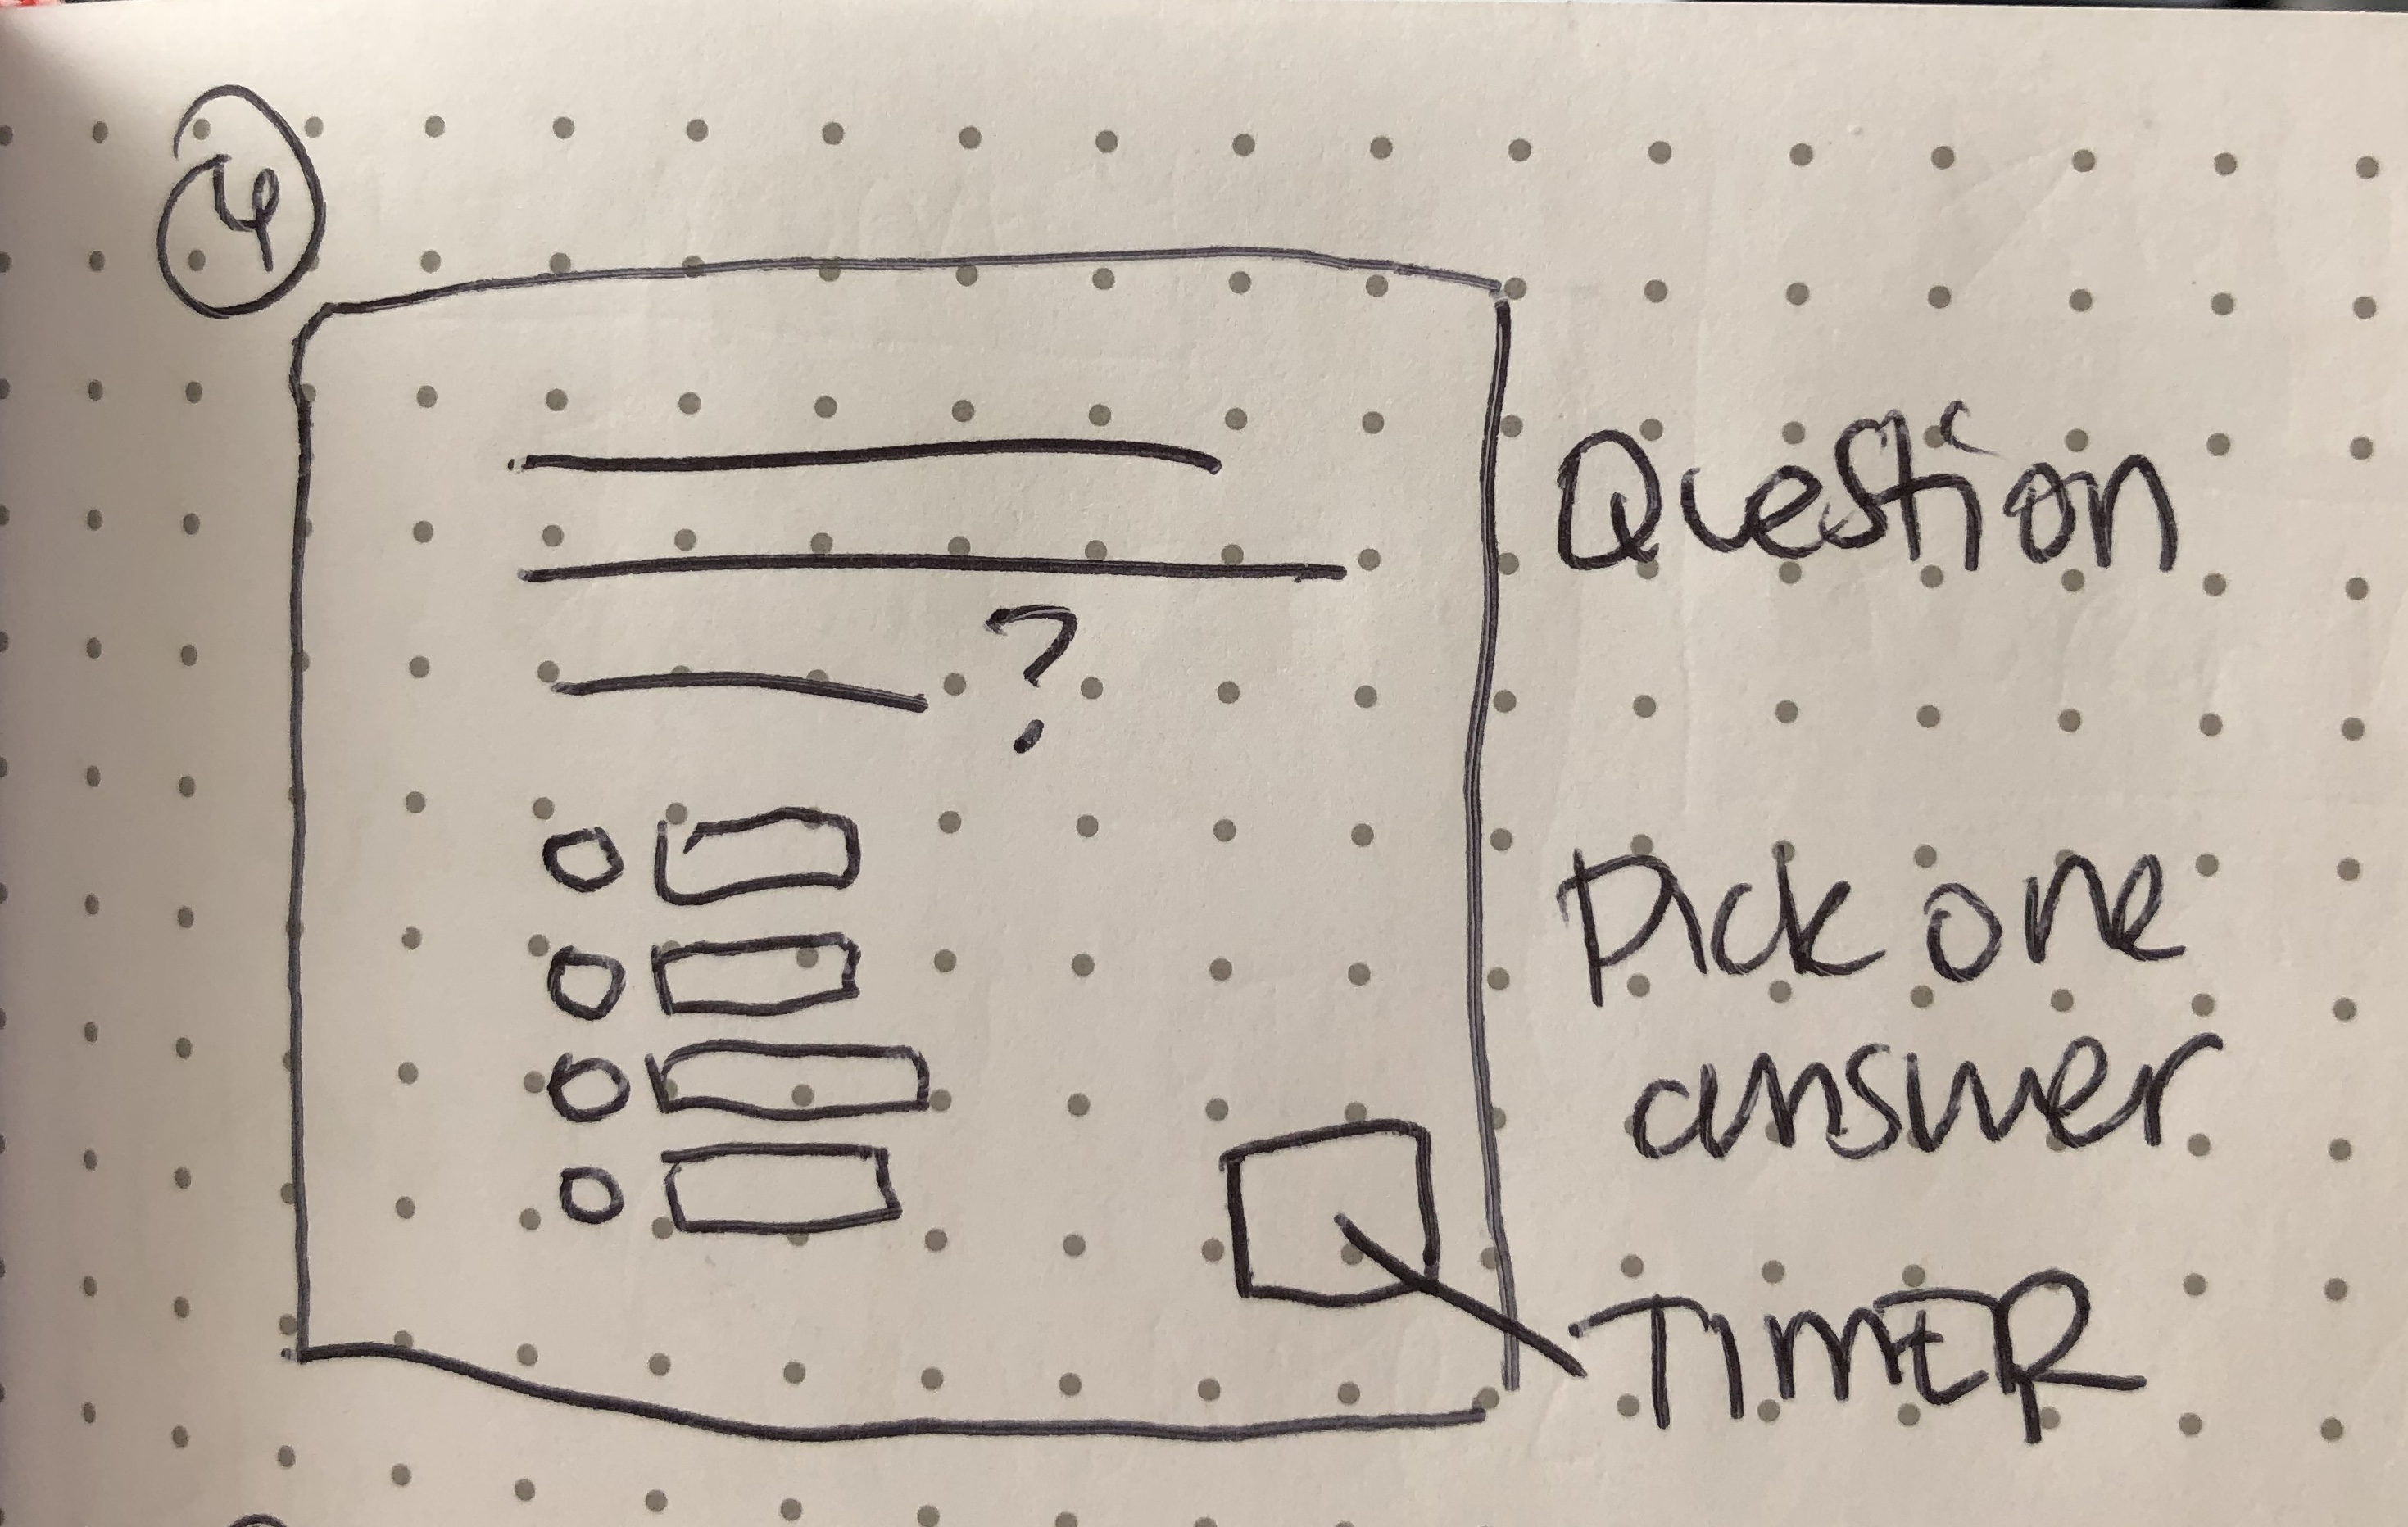 4
Question
?
Pick one
answer
TIMER